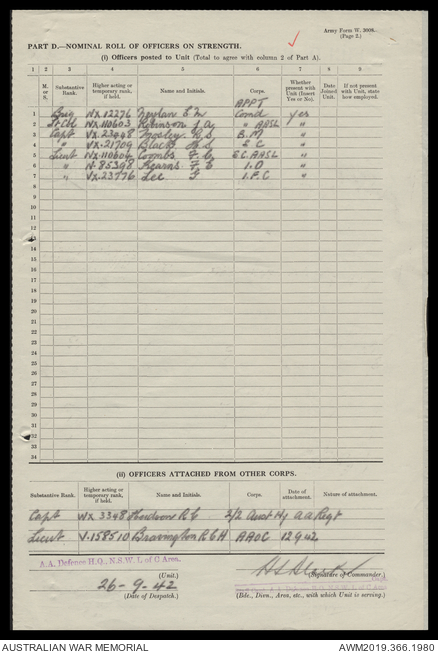 Army Form W. 3008.
(Page 2.)
PART D.—NOMINAL ROLL OF OFFICERS ON STRENGTH.
(i) Officers posted to Unit (Total to agree with column 2 of Part A).
1 2 3 4 5 6 7 8 9
M. or S. Substantive Rank. Higher acting or temporary rank, if held. Name and Initials. Corps. Whether present with Unit (Insert Yes or No). Date Joined Unit. If not present with Unit, state how employed.
APPT
1 Brig NX.12276 Newlan E M Comd yes
2 Lt Col NX.110603 Robinson J A " AASL "
3 Capt VX.23448 Mosley R S B.M "
4 " VX.21709 Black H S S C "
5 Lieut NX.110604 Coombs F C S.C. AASL "
6 " N.85398 Kearns F E I.O "
7 " VX.23776 Lee G I.F.C "
8
9
10
11
12
13
14
15
16
17
18
19
20
21
22
23
24
25
26
27
28
29
30
31
32
33
34
(ii) OFFICERS ATTACHED FROM OTHER CORPS.
Substantive Rank. Higher acting or temporary rank, if held. Name and Initials. Corps. Date of attachment. Nature of attachment.
Capt WX 3348 Howdson R G 2/2 Aust Hy A A Regt
Lieut V.158510 Bravington R G H AAOC 12 9 42
A.A. Defence H.Q., N.S.W. L of C Area.
(Unit.)
(Signature of Commander.)
26-9-42
(Date of Despatch.)
(Bde., Divn., Area, etc., with which Unit is serving.)
AUSTRALIAN WAR MEMORIAL
AWM2019.366.1980